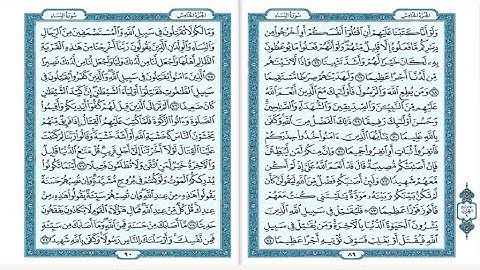 سُورَةُ النِّسَاءِ
الجُزْءُ الخَامِسُ
وَلَوْ أَنَّا كَتَبْنَا عَلَيْهِمْ أَنِ ٱقْتُلُوٓا۟ أَنفُسَكُمْ أَوِ ٱخْرُجُوا۟ مِن
دِيَـٰرِكُم مَّا فَعَلُوهُ إِلَّا قَلِيلٌ مِّنْهُمْ وَلَوْ أَنَّهُمْ فَعَلُوا۟ مَا يُوعَظُونَ
بِهِۦ لَكَانَ خَيْرًا لَّهُمْ وَأَشَدَّ تَثْبِيتًا ٦٦ وَإِذًا لَّـَٔاتَيْنَـٰهُم مِّن
لَّدُنَّآ أَجْرًا عَظِيمًا ٦٧ وَلَهَدَيْنَـٰهُمْ صِرَٰطًا مُّسْتَقِيمًا
٦٨ وَمَن يُطِعِ ٱللَّهَ وَٱلرَّسُولَ فَأُو۟لَـٰٓئِكَ مَعَ ٱلَّذِينَ أَنْعَمَ ٱللَّهُ
عَلَيْهِم مِّنَ ٱلنَّبِيِّـۧنَ وَٱلصِّدِّيقِينَ وَٱلشُّهَدَآءِ وَٱلصَّـٰلِحِينَ
وَحَسُنَ أُو۟لَـٰٓئِكَ رَفِيقًا ٦٩ ذَٰلِكَ ٱلْفَضْلُ مِنَ ٱللَّهِ وَكَفَىٰ
بِٱللَّهِ عَلِيمًا ٧٠ يَـٰٓأَيُّهَا ٱلَّذِينَ ءَامَنُوا۟ خُذُوا۟ حِذْرَكُمْ
فَٱنفِرُوا۟ ثُبَاتٍ أَوِ ٱنفِرُوا۟ جَمِيعًا ٧١ وَإِنَّ مِنكُمْ لَمَن لَّيُبَطِّئَنَّ
فَإِنْ أَصَـٰبَتْكُم مُّصِيبَةٌ قَالَ قَدْ أَنْعَمَ ٱللَّهُ عَلَىَّ إِذْ لَمْ أَكُن
مَّعَهُمْ شَهِيدًا ٧٢ وَلَئِنْ أَصَـٰبَكُمْ فَضْلٌ مِّنَ ٱللَّهِ لَيَقُولَنَّ كَأَن
لَّمْ تَكُنۢ بَيْنَكُمْ وَبَيْنَهُۥ مَوَدَّةٌ يَـٰلَيْتَنِى كُنتُ مَعَهُمْ
فَأَفُوزَ فَوْزًا عَظِيمًا ٧٣ فَلْيُقَـٰتِلْ فِى سَبِيلِ ٱللَّهِ ٱلَّذِينَ
يَشْرُونَ ٱلْحَيَوٰةَ ٱلدُّنْيَا بِٱلْـَٔاخِرَةِ وَمَن يُقَـٰتِلْ فِى سَبِيلِ
ٱللَّهِ فَيُقْتَلْ أَوْ يَغْلِبْ فَسَوْفَ نُؤْتِيهِ أَجْرًا عَظِيمًا ٧٤
٨٩
سُورَةُ النِّسَاءِ
الجُزْءُ الخَامِسُ
وَمَا لَكُمْ لَا تُقَـٰتِلُونَ فِى سَبِيلِ ٱللَّهِ وَٱلْمُسْتَضْعَفِينَ مِنَ ٱلرِّجَالِ
وَٱلنِّسَآءِ وَٱلْوِلْدَٰنِ ٱلَّذِينَ يَقُولُونَ رَبَّنَآ أَخْرِجْنَا مِنْ هَـٰذِهِ ٱلْقَرْيَةِ
ٱلظَّالِمِ أَهْلُهَا وَٱجْعَل لَّنَا مِن لَّدُنكَ وَلِيًّا وَٱجْعَل لَّنَا مِن لَّدُنكَ نَصِيرًا
٧٥ ٱلَّذِينَ ءَامَنُوا۟ يُقَـٰتِلُونَ فِى سَبِيلِ ٱللَّهِ وَٱلَّذِينَ كَفَرُوا۟ يُقَـٰتِلُونَ
فِى سَبِيلِ ٱلطَّـٰغُوتِ فَقَـٰتِلُوٓا۟ أَوْلِيَآءَ ٱلشَّيْطَـٰنِ إِنَّ كَيْدَ ٱلشَّيْطَـٰنِ
كَانَ ضَعِيفًا ٧٦ أَلَمْ تَرَ إِلَى ٱلَّذِينَ قِيلَ لَهُمْ كُفُّوٓا۟ أَيْدِيَكُمْ وَأَقِيمُوا۟
ٱلصَّلَوٰةَ وَءَاتُوا۟ ٱلزَّكَوٰةَ فَلَمَّا كُتِبَ عَلَيْهِمُ ٱلْقِتَالُ إِذَا فَرِيقٌ مِّنْهُمْ
يَخْشَوْنَ ٱلنَّاسَ كَخَشْيَةِ ٱللَّهِ أَوْ أَشَدَّ خَشْيَةً وَقَالُوا۟ رَبَّنَا لِمَ كَتَبْتَ
عَلَيْنَا ٱلْقِتَالَ لَوْلَآ أَخَّرْتَنَآ إِلَىٰٓ أَجَلٍ قَرِيبٍ قُلْ مَتَـٰعُ ٱلدُّنْيَا قَلِيلٌ
وَٱلْـَٔاخِرَةُ خَيْرٌ لِّمَنِ ٱتَّقَىٰ وَلَا تُظْلَمُونَ فَتِيلًا ٧٧ أَيْنَمَا تَكُونُوا۟
يُدْرِككُّمُ ٱلْمَوْتُ وَلَوْ كُنتُمْ فِى بُرُوجٍ مُّشَيَّدَةٍ وَإِن تُصِبْهُمْ حَسَنَةٌ
يَقُولُوا۟ هَـٰذِهِۦ مِنْ عِندِ ٱللَّهِ وَإِن تُصِبْهُمْ سَيِّئَةٌ يَقُولُوا۟ هَـٰذِهِۦ مِنْ
عِندِكَ قُلْ كُلٌّ مِّنْ عِندِ ٱللَّهِ فَمَالِ هَـٰٓؤُلَآءِ ٱلْقَوْمِ لَا يَكَادُونَ يَفْقَهُونَ
حَدِيثًا ٧٨ مَّآ أَصَابَكَ مِنْ حَسَنَةٍ فَمِنَ ٱللَّهِ وَمَآ أَصَابَكَ مِن سَيِّئَةٍ
فَمِن نَّفْسِكَ وَأَرْسَلْنَـٰكَ لِلنَّاسِ رَسُولًا وَكَفَىٰ بِٱللَّهِ شَهِيدًا ٧٩
٩٠